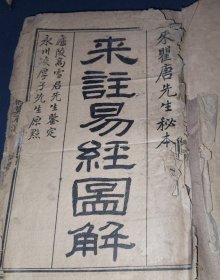 來瞿唐先生秘本
來註易經圖解
廬陵高雪君先生鑒定
永川凌厚子先生原點